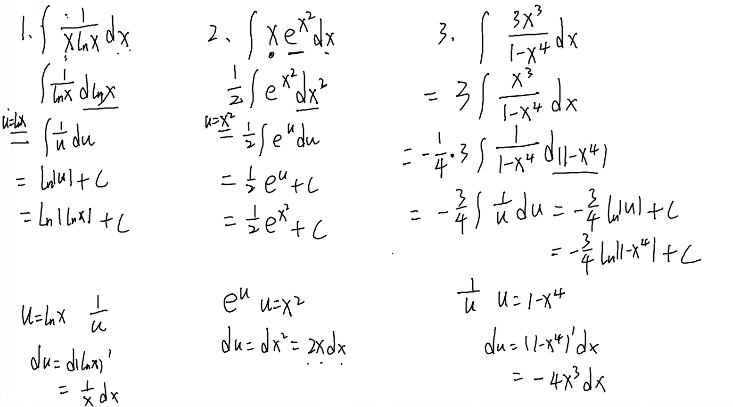 1. ∫ 1/(x ln x) dx
∫ 1/(ln x) d ln x
u=lnx = ∫ 1/u du
= ln|u| + C
= ln|lnx| + C
u=lnx 1/u
du = d(lnx)'
= 1/x dx
2、 ∫ x e^(x²) dx
1/2 ∫ e^(x²) dx²
u=x² = 1/2 ∫ e^u du
= 1/2 e^u + C
= 1/2 e^(x²) + C
e^u u=x²
du = dx² = 2x dx
3. ∫ 3x³/(1-x⁴) dx
= 3 ∫ x³/(1-x⁴) dx
= -1/4 · 3 ∫ 1/(1-x⁴) d(1-x⁴)
= -3/4 ∫ 1/u du = -3/4 ln|u| + C
= -3/4 ln|1-x⁴| + C
1/u u=1-x⁴
du = (1-x⁴)' dx
= -4x³ dx